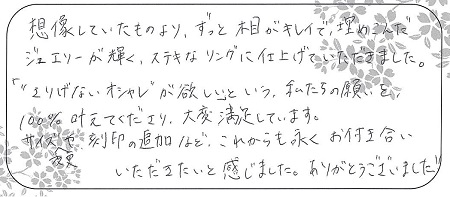 想像していたものより、ずっと木目がキレイで、埋めこんだ
ジュエリーが輝く、ステキなリングに仕上げていただきました。
「"さりげないオシャレ"が欲しい」という、私たちの願いを、
100% 叶えてくださり、大変満足しています。
サイズ変更や、刻印の追加など、これからも永くお付き合い
いただきたいと感じました。ありがとうございました